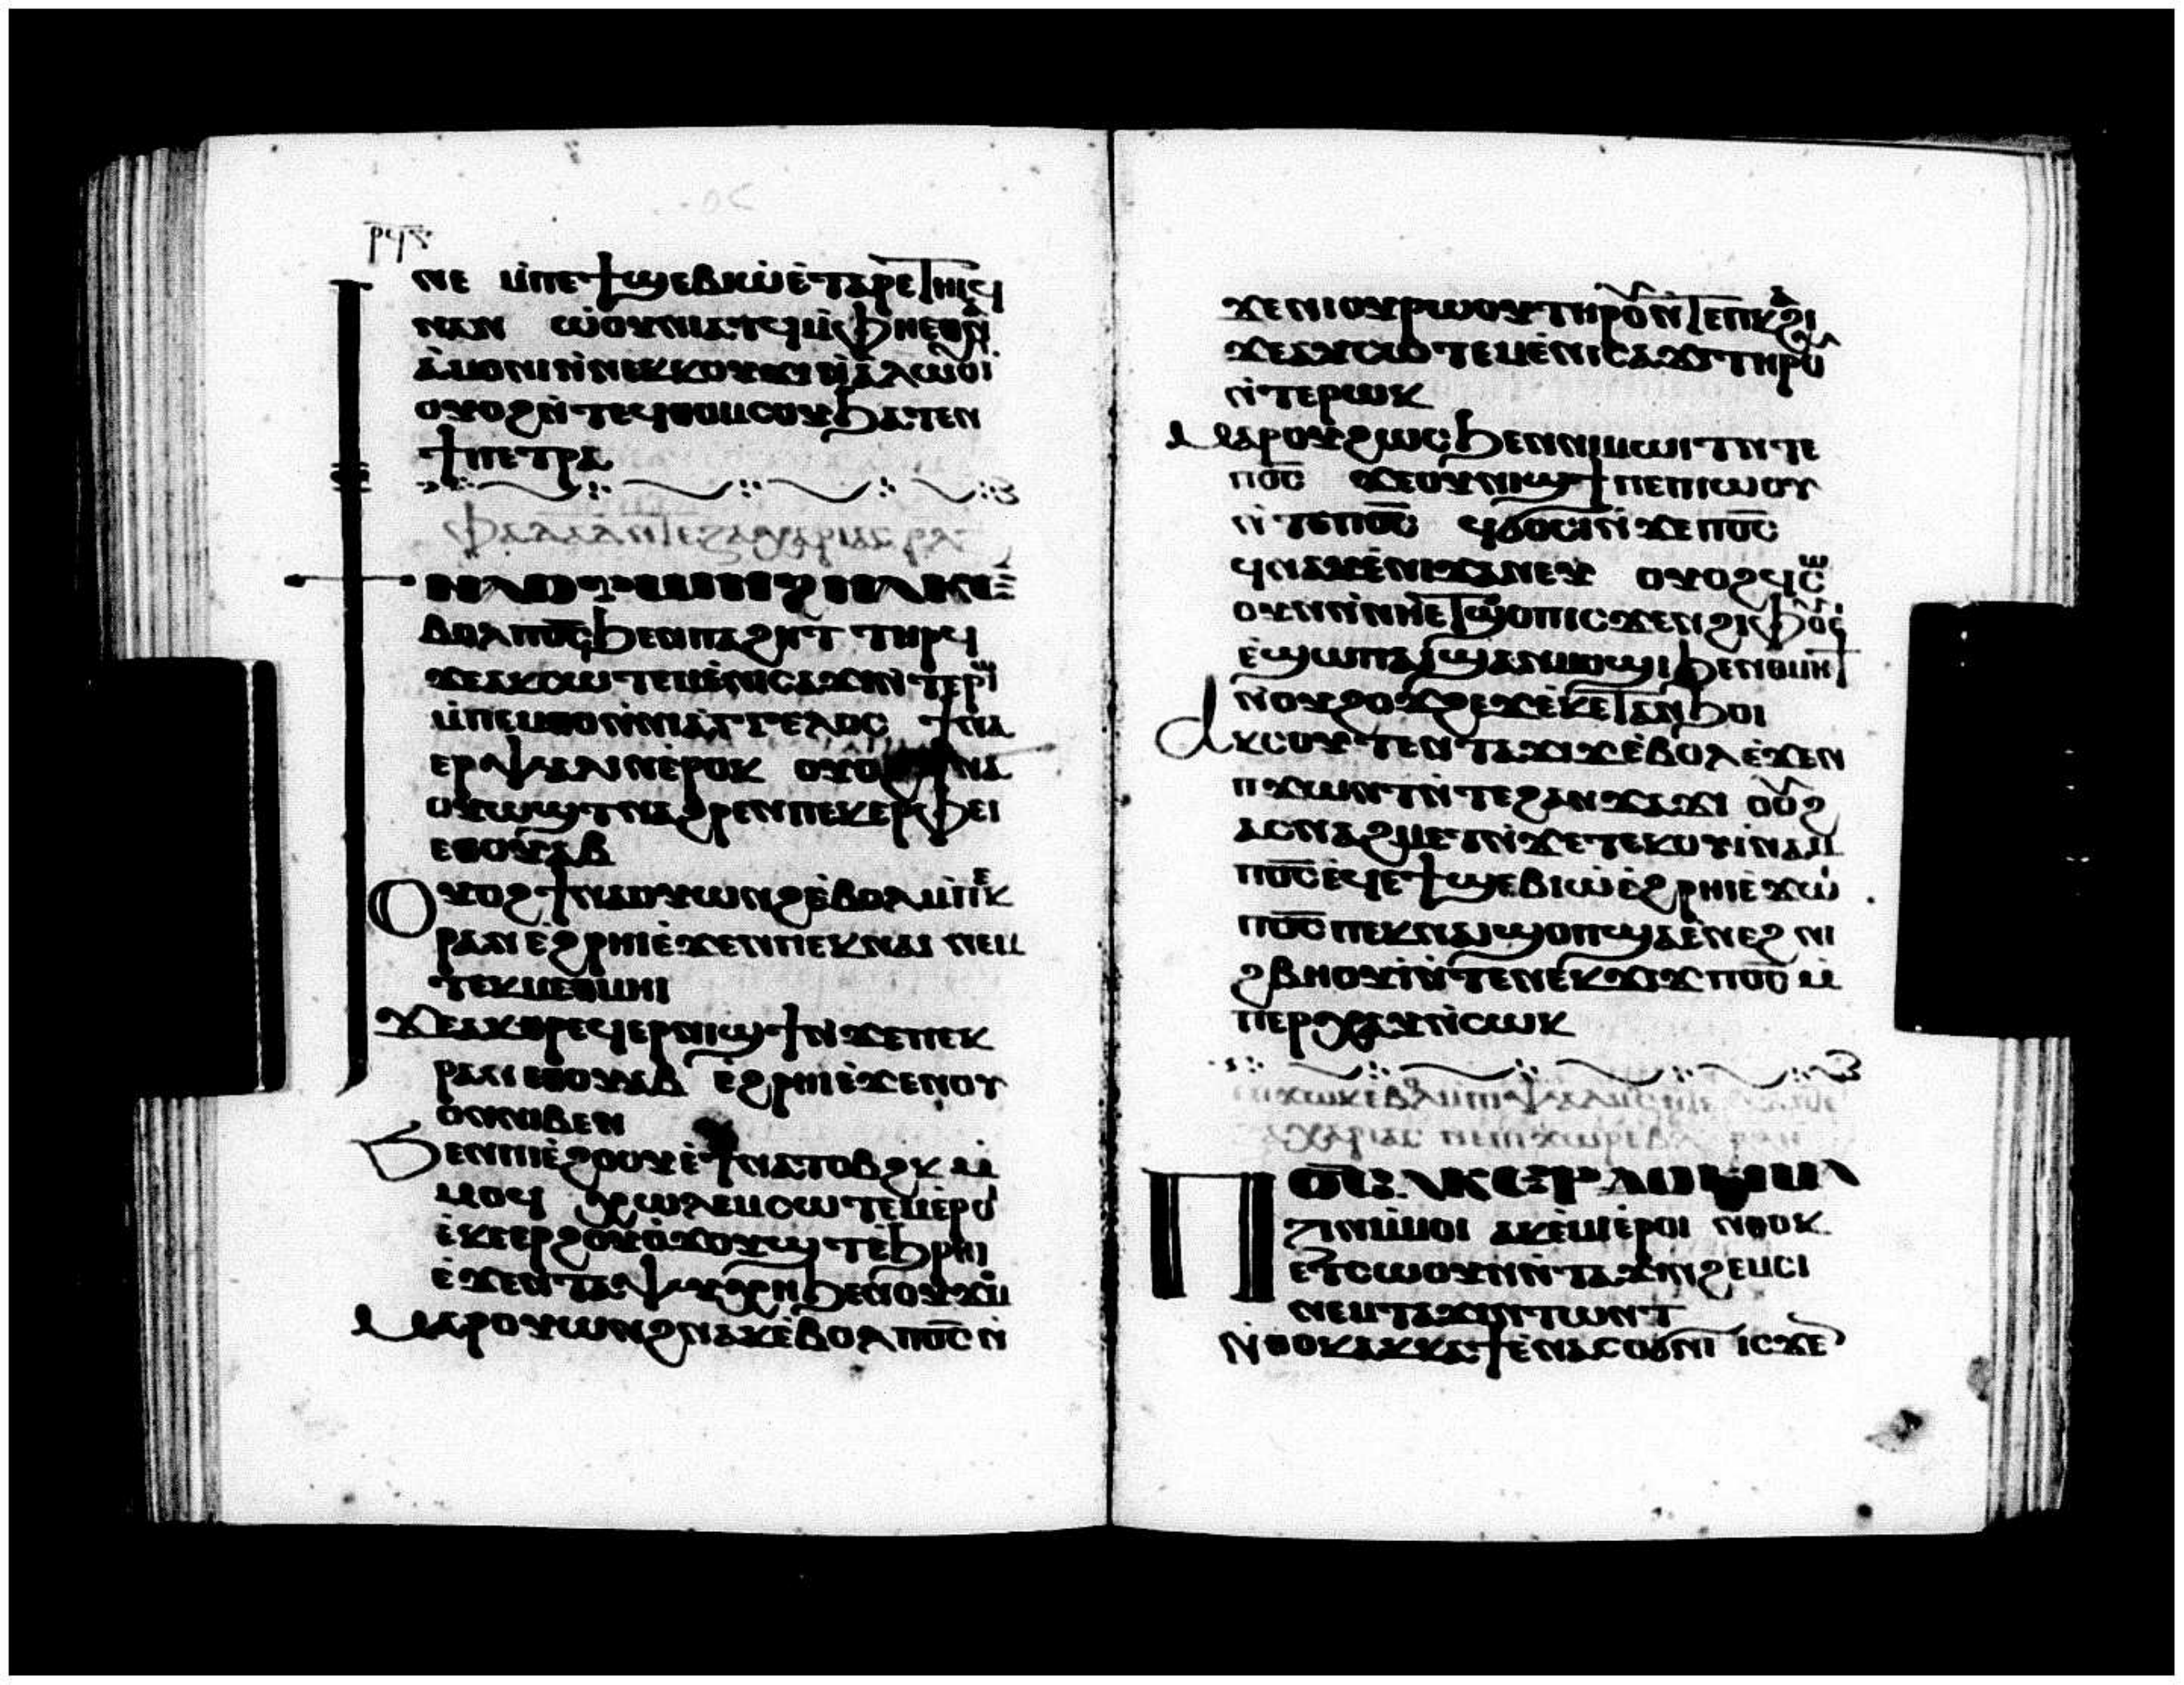 ⲣϥⲋ
ⲛⲉ ⲙ̀ⲡⲉϯϣⲉⲃⲓⲱ ⲉ̀ⲧⲁⲣⲉⲧⲏⲓϥ
ⲛⲁⲛ ⲱⲟⲩⲛⲓⲁⲧϥ ⲙ̀ⲫⲏⲉⲑⲛⲁ
ⲁ̀ⲙⲟⲛⲓ ⲛ̀ⲛⲉⲕⲕⲟⲩϫⲓ ⲛ̀ⲁ̀ⲗⲱⲟⲩⲓ
ⲟⲩⲟϩ ⲛ̀ⲧⲉϥⲫⲟⲙⲥⲟⲩ ϧⲁⲧⲉⲛ
ϯⲡⲉⲧⲣⲁ
ⲫⲁ ⲇⲁⲇ ⲛⲧⲉ ⲍⲁⲭⲁⲣⲓⲁⲥ ⲣⲗⲍ
ϯⲛⲁⲟⲩⲱⲛϩ ⲛⲁⲕ ⲉ̀
ⲃⲟⲗ ⲡⲟ̅ⲥ̅ ϧⲉⲛⲡⲁϩⲏⲧ ⲧⲏⲣϥ
ϫⲉⲁⲕⲥⲱⲧⲉⲙ ⲉ̀ⲛⲓⲥⲁϫⲓ ⲛ̀ⲧⲉⲣⲱⲓ
ⲙ̀ⲡⲉⲙⲑⲟ ⲛ̀ⲛⲓⲁⲅⲅⲉⲗⲟⲥ ϯⲛⲁ
ⲉⲣⲯⲁⲗⲓⲛ ⲉ̀ⲣⲟⲕ ⲟⲩⲟϩ ϯⲛⲁ
ⲟⲩⲱϣⲧ ⲛⲁϩⲣⲉⲛ ⲡⲉⲕⲉⲣⲫⲉⲓ
ⲉⲑⲟⲩⲁⲃ
Ⲟⲩⲟϩ ϯⲛⲁⲟⲩⲱⲛϩ ⲉ̀ⲃⲟⲗ ⲙ̀ⲡⲉⲕ
ⲣⲁⲛ ⲉ̀ϩⲣⲏⲓ ⲉ̀ϫⲉⲛ ⲡⲉⲕⲛⲁⲓ ⲛⲉⲙ
ⲧⲉⲕⲙⲉⲑⲙⲏⲓ
Ϫⲉⲁⲕⲑⲣⲉϥⲉⲣⲛⲓϣϯ ⲛ̀ϫⲉⲡⲉⲕ
ⲣⲁⲛ ⲉⲑⲟⲩⲁⲃ ⲉ̀ϩⲣⲏⲓ ⲉ̀ϫⲉⲛ ⲟⲩ
ⲟⲛ ⲛⲓⲃⲉⲛ
Ϧⲉⲛⲡⲓⲉ̀ϩⲟⲟⲩ ⲉ̀ϯⲛⲁⲧⲟⲃϩⲕ ⲙ̀
ⲙⲟϥ ⲭⲱⲗⲉⲙ ⲥⲱⲧⲉⲙ ⲉ̀ⲣⲟⲓ
ⲉ̀ⲕⲉⲉⲣϩⲟⲩⲟ̀ ϫⲟⲩϣⲧ ⲉ̀ϧⲣⲏⲓ
ⲉ̀ϫⲉⲛ ⲧⲁⲯⲩⲭⲏ ϧⲉⲛⲟⲩϫⲟⲙ
Ⲙⲁⲣⲟⲩⲱⲛϩ ⲛⲁⲕ ⲉ̀ⲃⲟⲗ ⲡⲟ̅ⲥ̅ ⲛ̀
ϫⲉⲛⲓⲟⲩⲣⲱⲟⲩ ⲧⲏⲣⲟⲩ ⲛ̀ⲧⲉ ⲡⲕⲁϩⲓ
ϫⲉⲁⲩⲥⲱⲧⲉⲙ ⲉ̀ⲛⲓⲥⲁϫⲓ ⲧⲏⲣⲟⲩ
ⲛ̀ⲧⲉⲣⲱⲕ
Ⲙⲁⲣⲟⲩϩⲱⲥ ϧⲉⲛⲛⲓⲙⲱⲓⲧ ⲛ̀ⲧⲉ
ⲡⲟ̅ⲥ̅ ϫⲉⲟⲩⲛⲓϣϯ ⲡⲉ ⲡⲓⲱⲟⲩ
ⲛ̀ⲧⲉⲡⲟ̅ⲥ̅ ϥϭⲟⲥⲓ ⲛ̀ϫⲉ ⲡⲟ̅ⲥ̅
ϥⲛⲁⲩ ⲉ̀ⲛⲓ ⲟⲩⲟϩ ϥⲥⲱ
ⲟⲩⲛ ⲛ̀ⲛⲏⲉⲧϭⲟⲥⲓ ⲓⲥϫⲉⲛ ϩⲓⲫⲟⲩⲉⲓ
ⲉ̀ϣⲱⲡ ⲁⲓϣⲁⲛⲙⲟϣⲓ ϧⲉⲛⲑⲙⲏϯ
ⲛ̀ⲟⲩϩⲟϫϩⲉϫ ⲉ̀ⲕⲉⲧⲁⲛϧⲟⲓ
Ⲁⲕⲥⲟⲩⲧⲉⲛ ⲧⲉⲕϫⲓϫ ⲉ̀ⲃⲟⲗ ⲉ̀ϫⲉⲛ
ⲡϫⲱⲛⲧ ⲛ̀ⲧⲉ ϩⲁⲛϫⲁϫⲓ ⲟⲩⲟϩ
ⲁⲥⲛⲁϩⲙⲉⲧ ⲛ̀ϫⲉ ⲧⲉⲕⲟⲩⲓ̀ⲛⲁⲙ
ⲡⲟ̅ⲥ̅ ⲉϥⲉ̀ϯϣⲉⲃⲓⲱ ⲉ̀ϩⲣⲏⲓ ⲉ̀ϫⲱⲓ
ⲡⲟ̅ⲥ̅ ⲡⲉⲕⲛⲁⲓ ϣⲟⲡ ϣⲁⲉ̀ⲛⲉϩ ⲛⲓ
ϩⲃⲏⲟⲩⲓ̀ ⲛ̀ⲧⲉ ⲛⲉⲕϫⲓϫ ⲡⲟ̅ⲥ̅ ⲙ̀
ⲡⲉⲣⲭⲁⲩ ⲛ̀ⲥⲱⲕ
Ⲡⲟ̅ⲥ̅ ⲁⲕⲉⲣⲇⲟⲕⲓⲙⲁ
ⲍⲓⲛ ⲙ̀ⲙⲟⲓ ⲁⲕⲉ̀ⲙⲓ ⲉ̀ⲣⲟⲓ ⲛⲑⲟⲕ
ⲉⲧⲥⲱⲟⲩⲛ ⲛ̀ⲧⲁϫⲓⲛϩⲉⲙⲥⲓ
ⲛⲉⲙ ⲧⲁϫⲓⲛⲧⲱⲛⲧ
Ⲛ̀ⲑⲟⲕ ⲁⲕⲕⲁϯ ⲉ̀ⲛⲁⲥⲟϭⲛⲓ ⲓⲥϫⲉⲛ